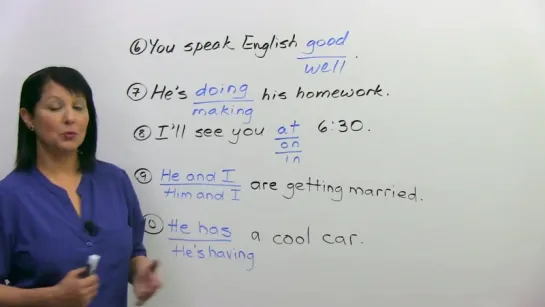 ⑥ You speak English good
well.
⑦ He's doing his homework.
making
⑧ I'll see you at 6:30.
on
in
⑨ He and I are getting married.
Him and I
⑩ He has a cool car.
He's having